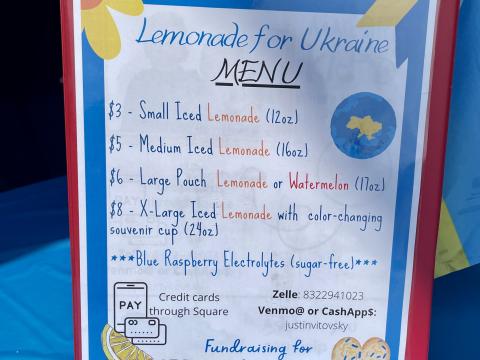 Lemonade for Ukraine
MENU
$3 - Small Iced Lemonade (12oz)
$5 - Medium Iced Lemonade (16oz)
$6 - Large Pouch Lemonade or Watermelon (17oz)
$8 - X-Large Iced Lemonade with color-changing
souvenir cup (24oz)
***Blue Raspberry Electrolytes (sugar-free)***
PAY
Credit cards
through Square
Zelle: 8322941023
Venmo@ or CashApp$:
justinvitovsky
Fundraising for